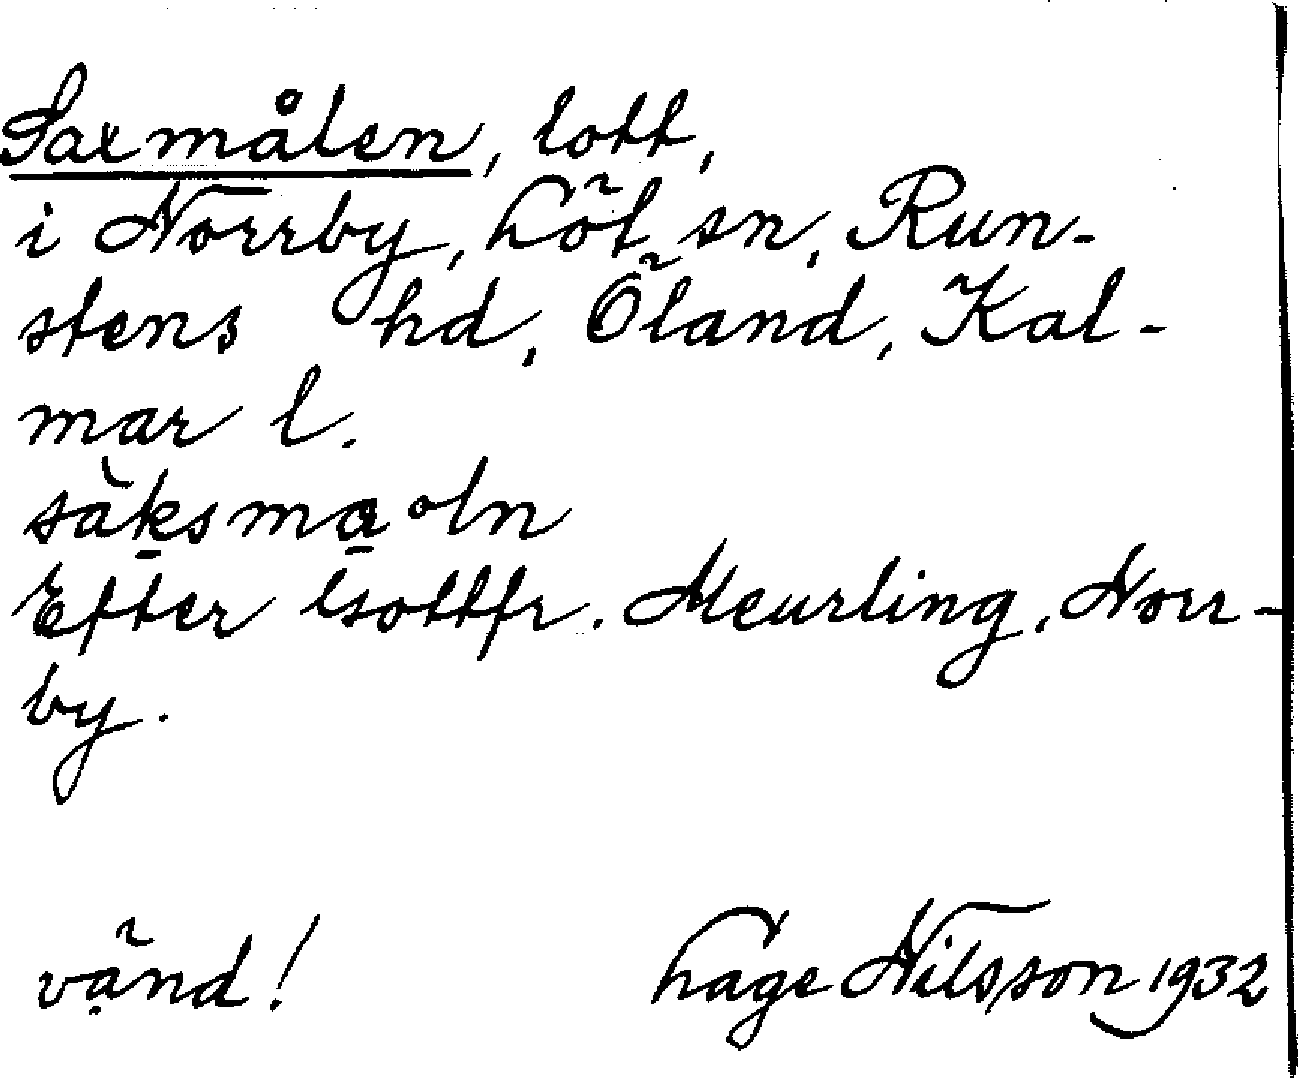 Saxmålen, lott,
i Norrby, Löt sn, Run-
stens hd, Öland, Kal-
mar l.
Efter Gottfr. Meurling, Norr-
by.
vänd! Hage Nilsson 1932